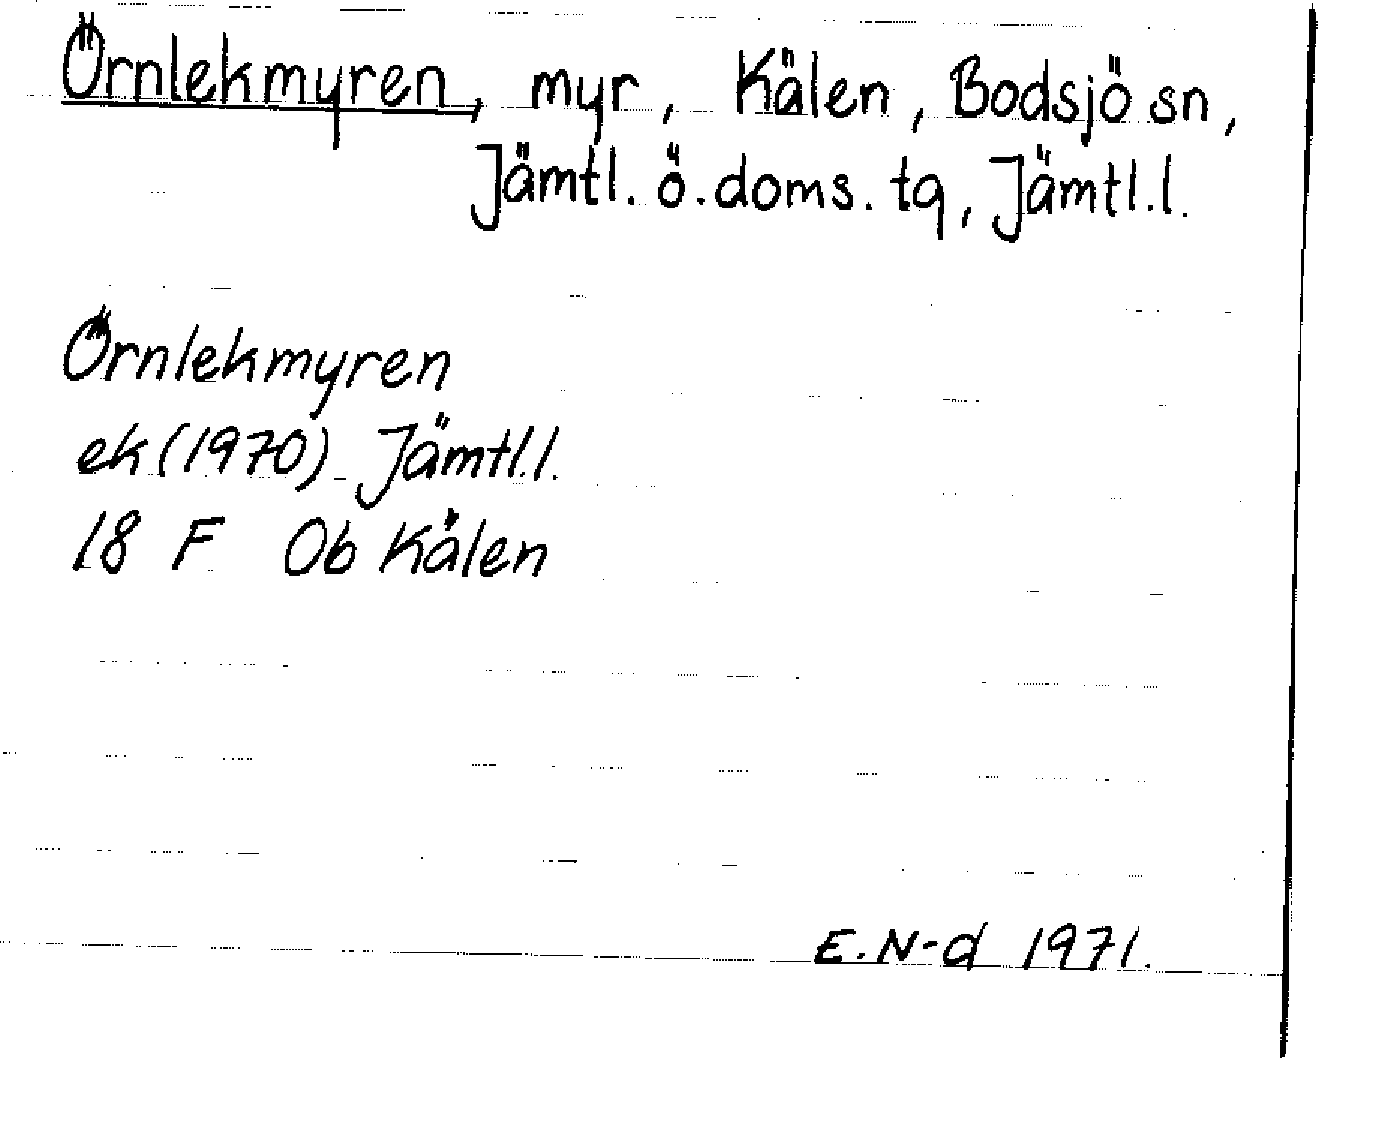 Örnlekmyren, myr, Kälen, Bodsjö sn,
Jämtl. ö. doms. tg, Jämtl.l.
Örnlekmyren
ek (1970) Jämtl.l.
18 F Ob Kälen
E.N-d 1971.